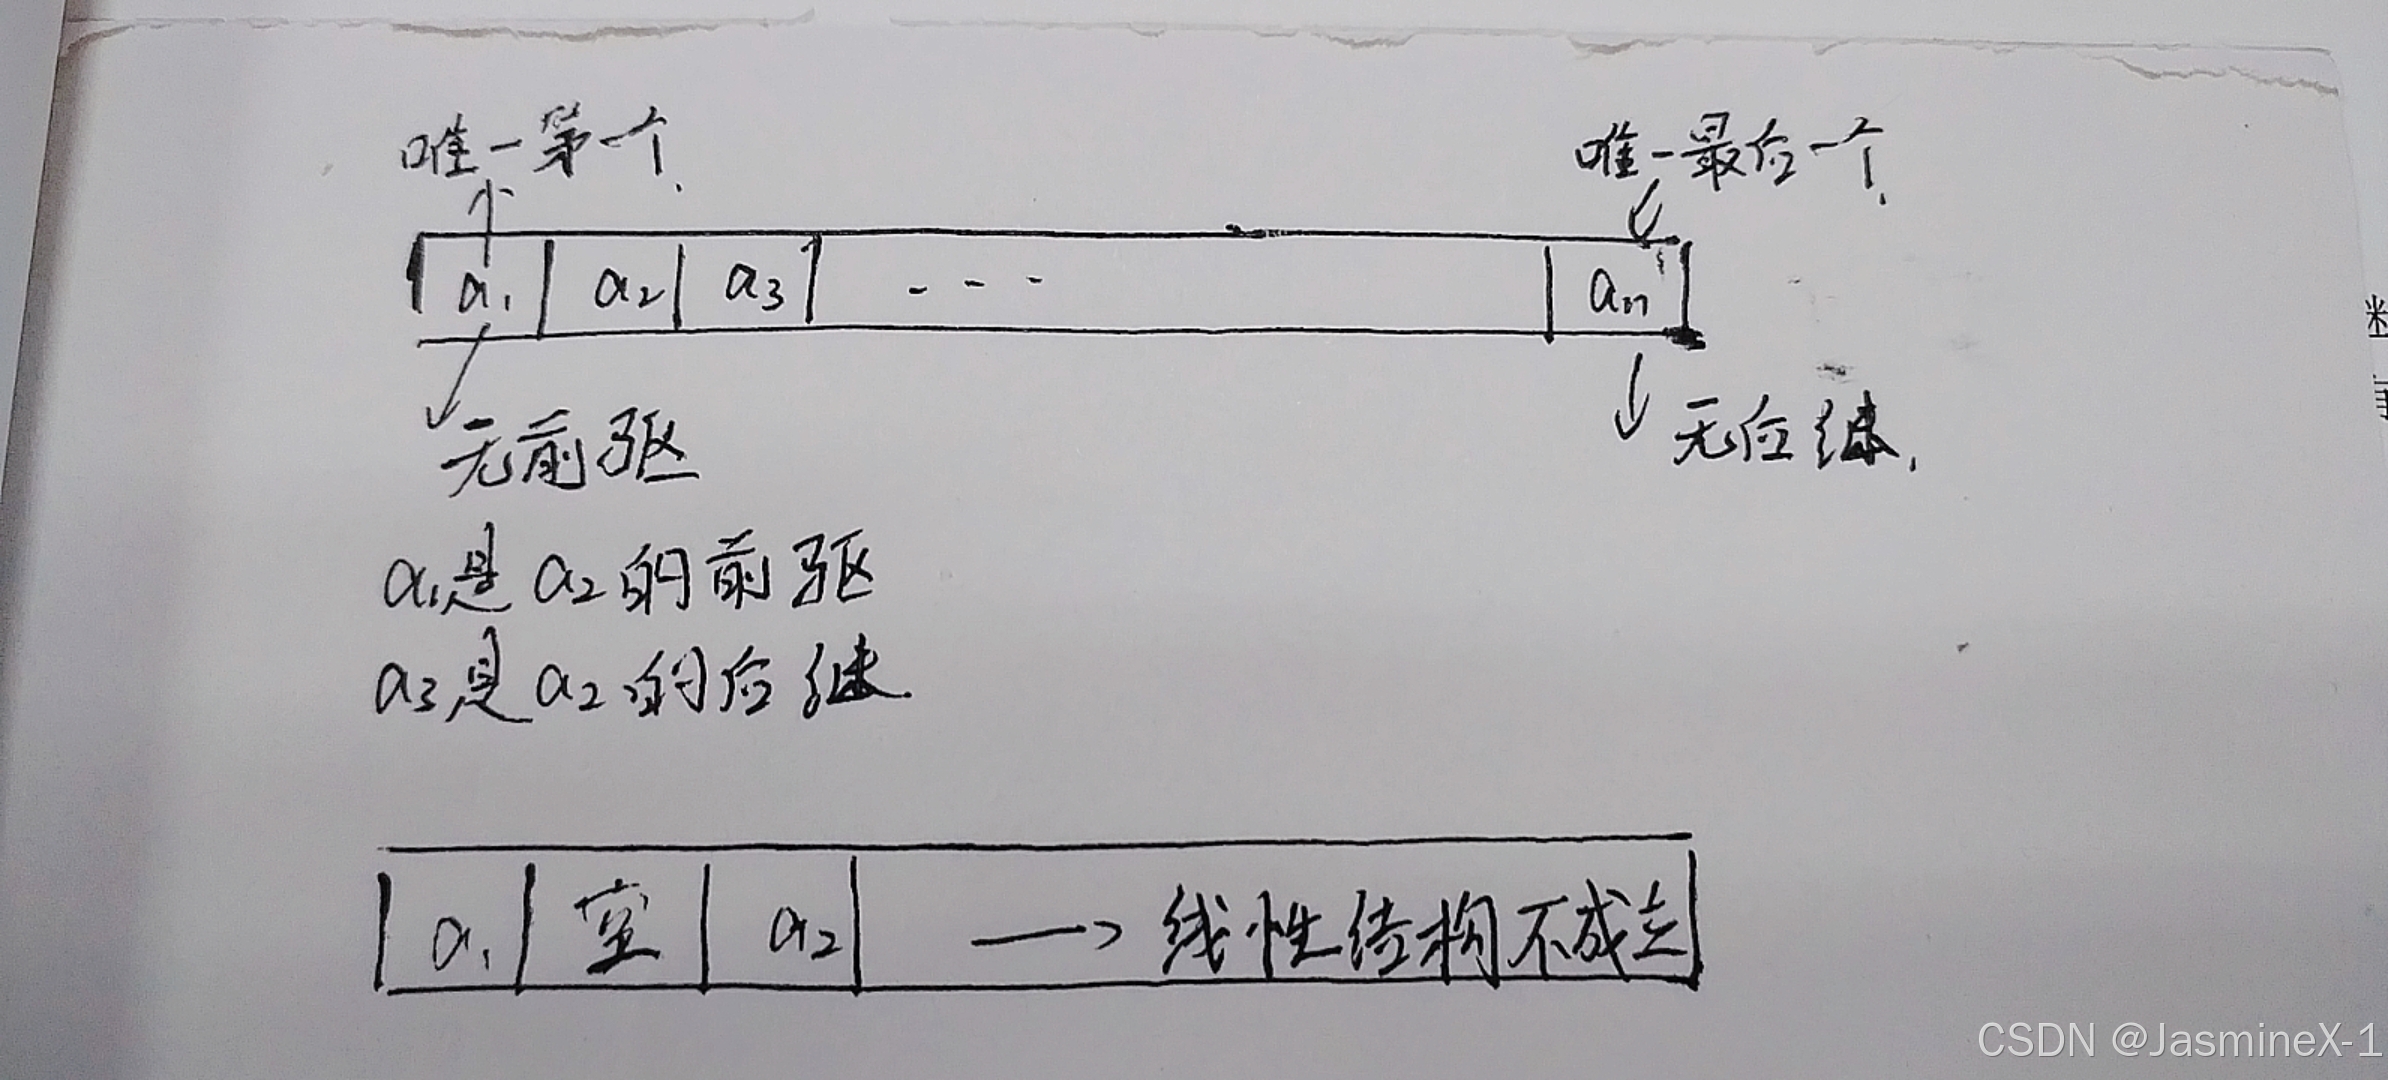 唯一第一个.
唯一最后一个.
a1 a2 a3 --- an
无前驱
无后继.
a1是a2的前驱
a3是a2的后继.
a1 空 a2 → 线性结构不成立
CSDN @JasmineX-1